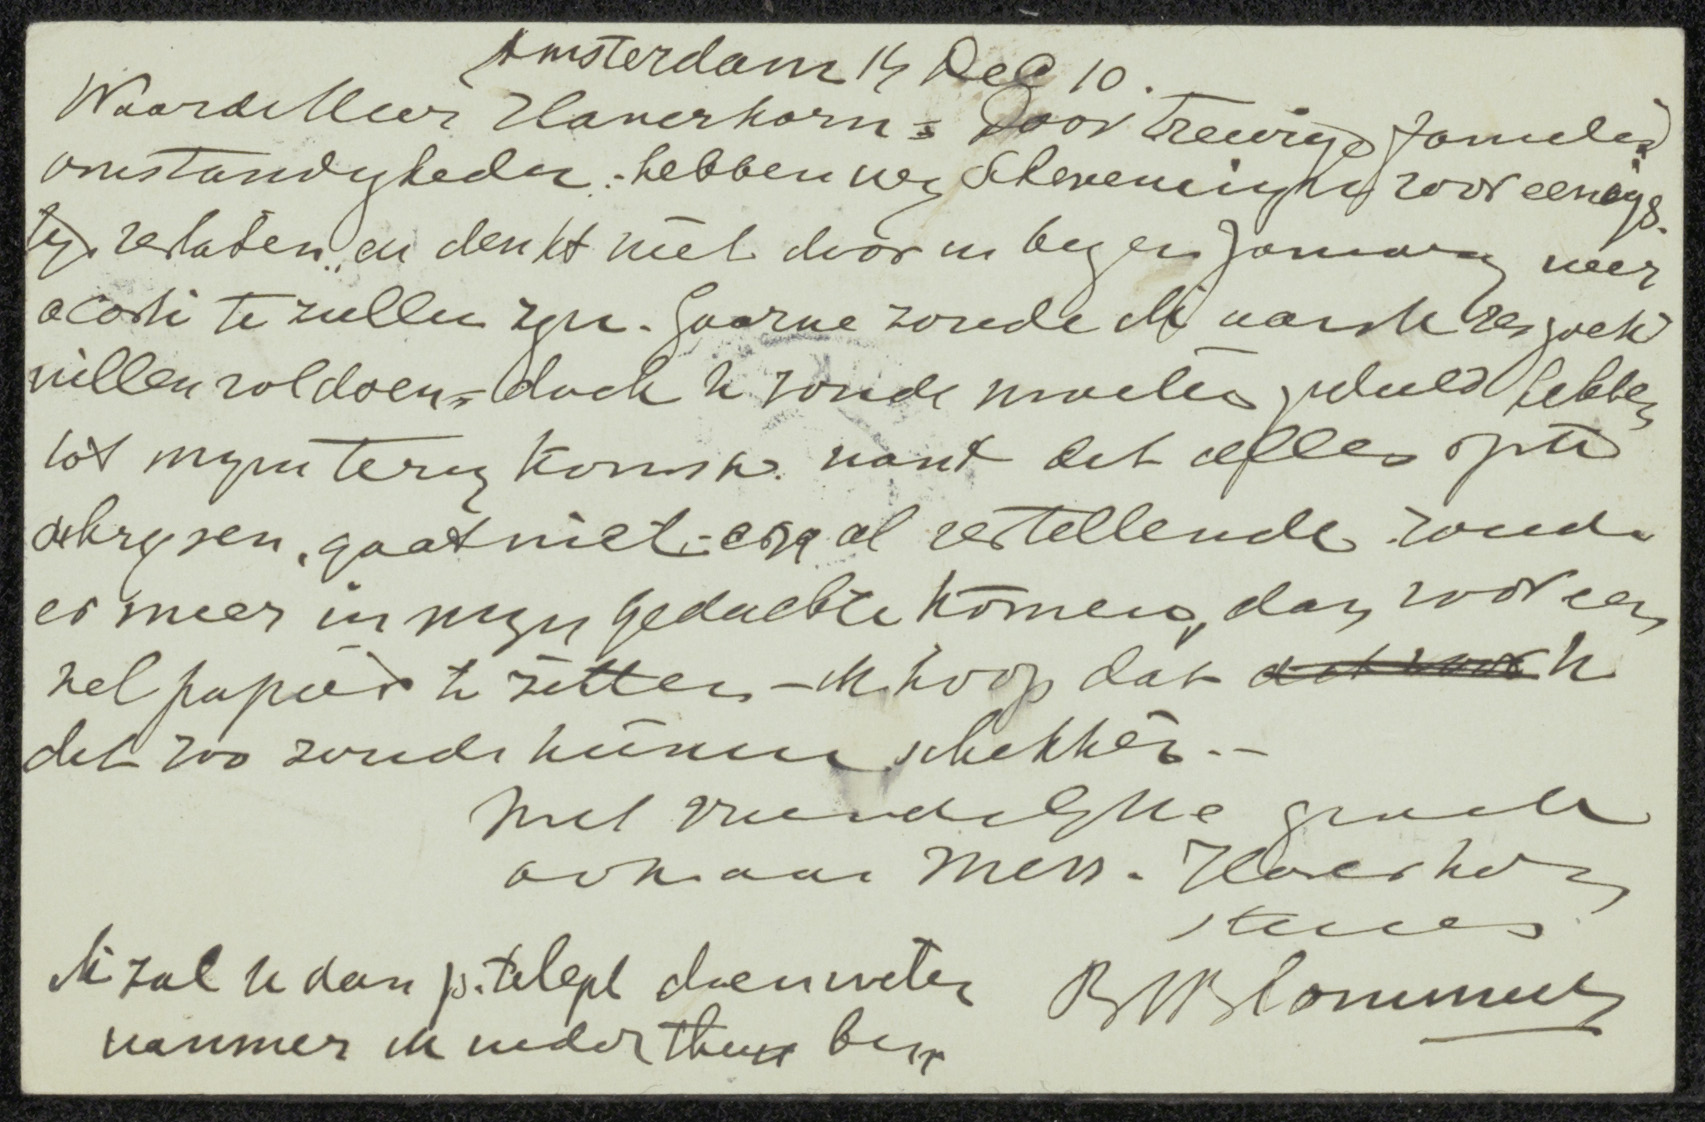 Amsterdam 14 Dec 10.
Waarde Heer Haverkorn = Door treurige familie
omstandigheden. hebben wy Scheveningen voor eenige
tyd verlaten, en denkt niet voor in begin January weer
alhier te zullen zyn. Gaarne zoude ik aan Uw verzoek
willen voldoen = doch U zoude moeten geduld hebben
tot myn terugkomst. want dat alles op te
schryven, gaat niet - en al vertellende zoude
er meer in myn gedachte komen, dan voor een
vel papier te zitten - ik hoop dat U
dat zoo zoude kunnen schikken. -
Met vriendelyke groete
ook aan Mevr. Haverkorn
steeds
B J Blommers
Ik zal U dan p. teleph doen weten
wanneer ik weder thuis ben